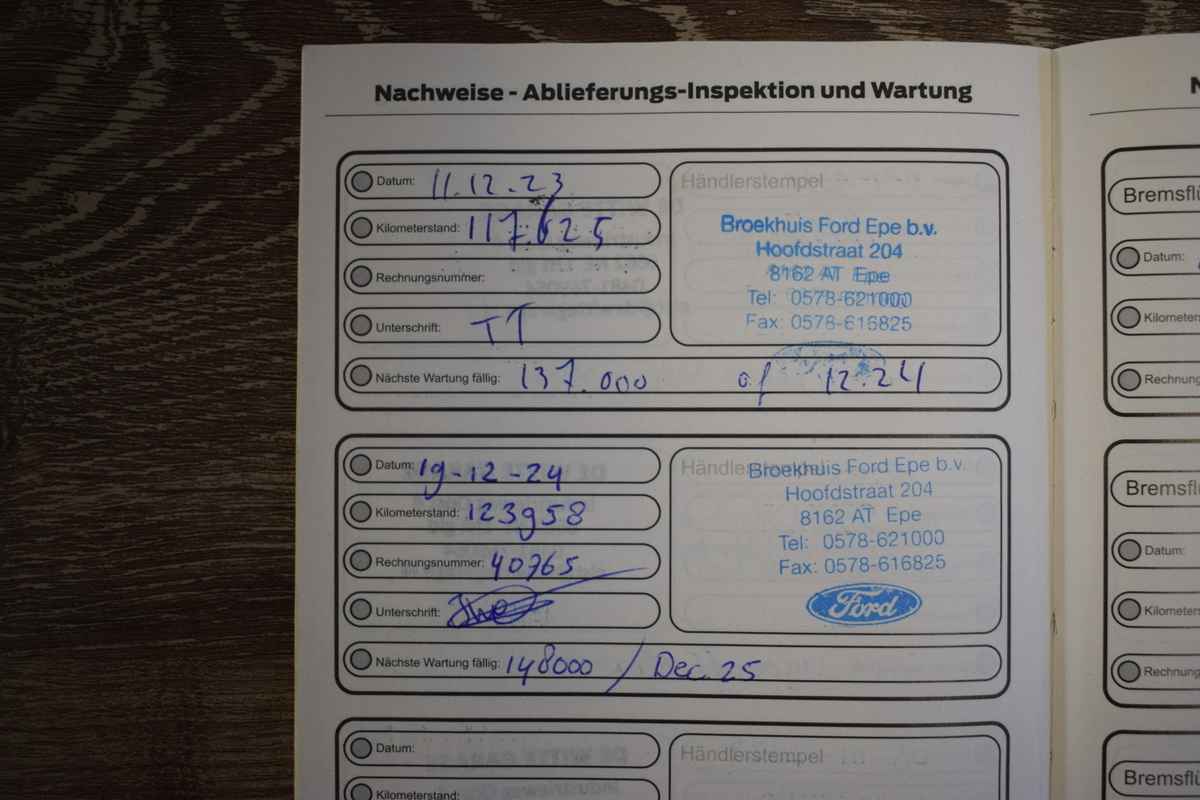 Nachweise - Ablieferungs-Inspektion und Wartung
Datum: 11.12.23
Kilometerstand: 117.625
Rechnungsnummer:
Unterschrift: TT
Nächste Wartung fällig: 137.000 of 12.24
Händlerstempel
Broekhuis Ford Epe b.v.
Hoofdstraat 204
8162 AT Epe
Tel: 0578-621000
Fax: 0578-616825
Datum: 19-12-24
Kilometerstand: 123958
Rechnungsnummer: 40765
Unterschrift:
Nächste Wartung fällig: 148000 / Dec. 25
Händlerstempel
Broekhuis Ford Epe b.v.
Hoofdstraat 204
8162 AT Epe
Tel: 0578-621000
Fax: 0578-616825
Ford
Datum:
Kilometerstand:
Händlerstempel
N
Bremsflü
Datum:
Kilometers
Rechnung
Bremsflü
Datum:
Kilometers
Rechnung
Bremsflü